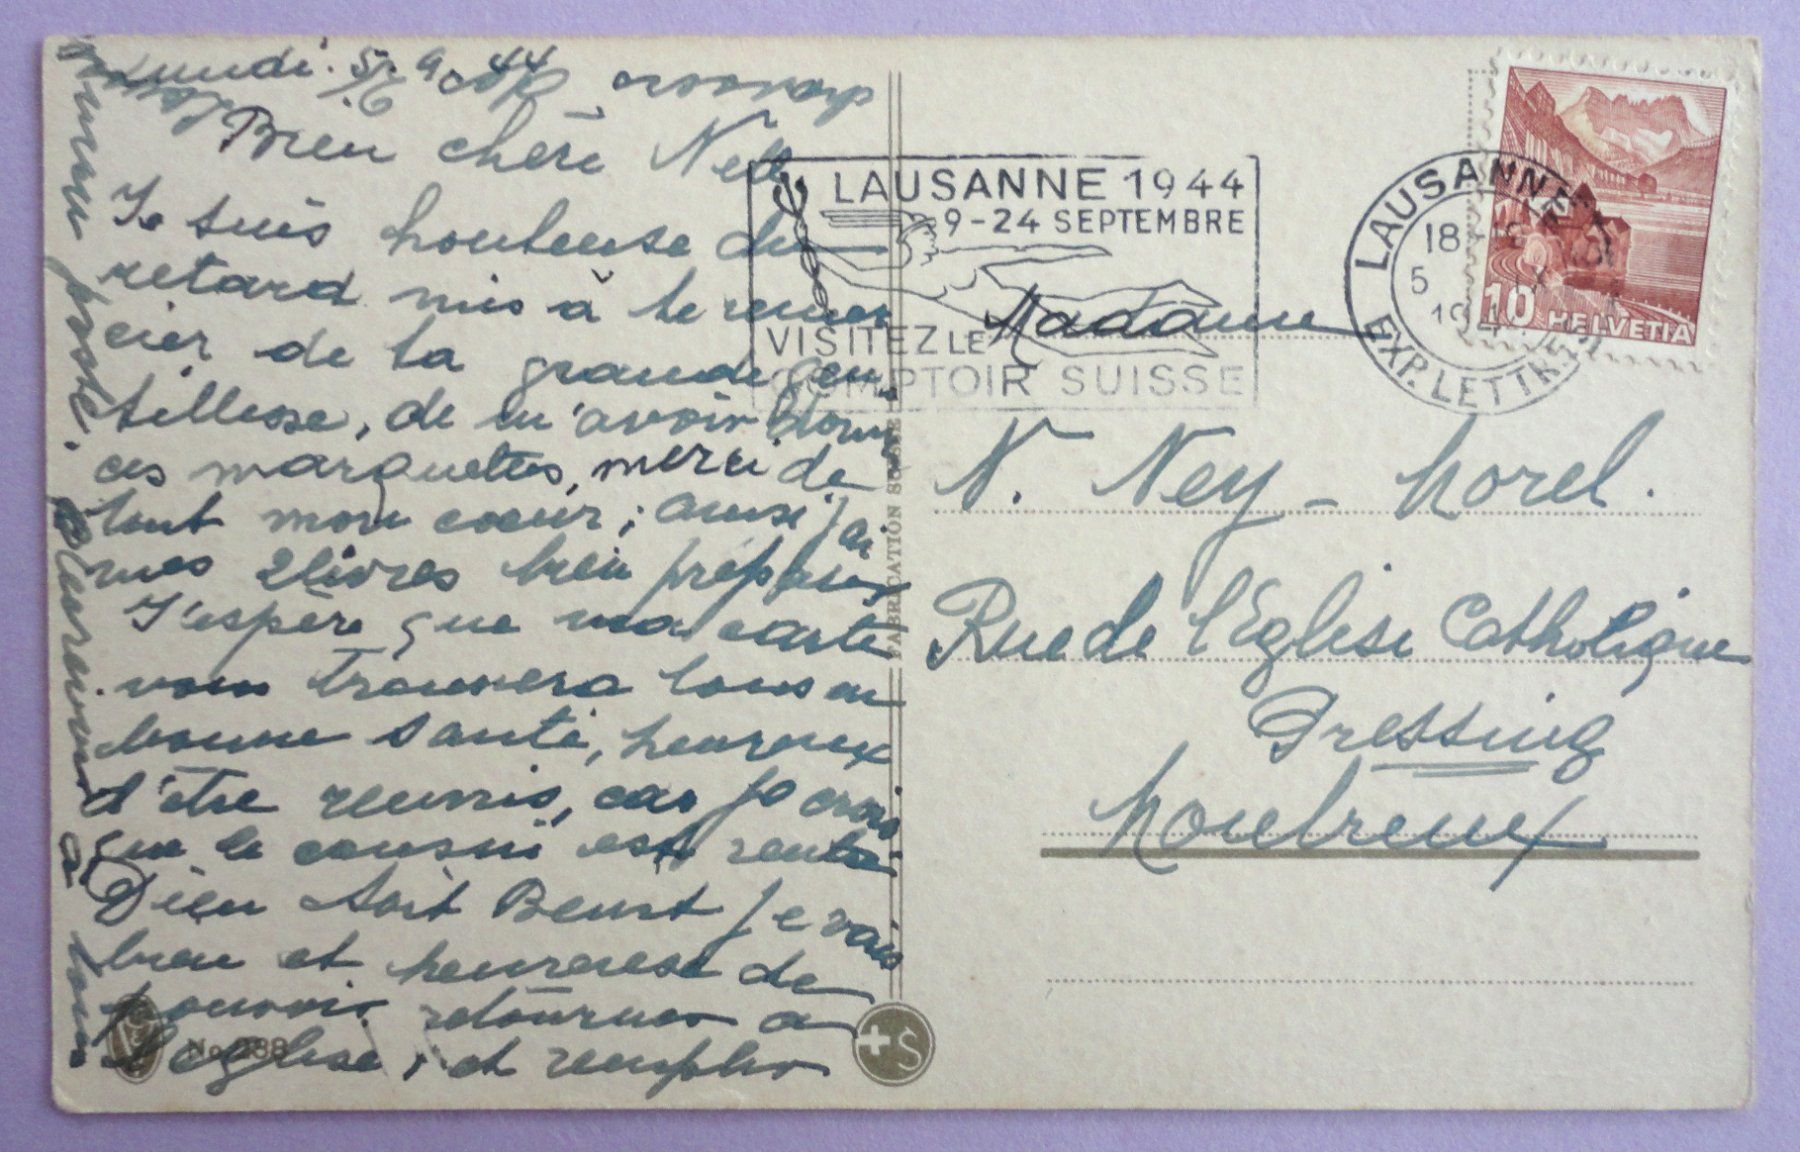 Lundi. 5. 9. 44
Bien chère Nelly
Je suis honteuse du
retard mis à te remer
cier de la grande gen
tillesse, de m'avoir donné
ces marquettes, merci de
tout mon coeur; ainsi j'ai
mes 2 livres bien préparés
J'espère que ma carte
vous trouvera tous en
bonne santé, heureux
d'être réunis, car je crois
que le cousin est rentré
Dieu soit Beni Je vais
bien et heureuse de
pouvoir retourner à
l'eglise, et remplir
mon poste.
Au revoir à
tous
LAUSANNE 1944
9-24 SEPTEMBRE
VISITEZ LE
COMPTOIR SUISSE
LAUSANNE
18
5
EXP. LETTR.
10 HELVETIA
Madame
N. Ney - Morel.
Rue de l'Eglise Catholique
Montreux
FABRICATION SUISSE
No
+S